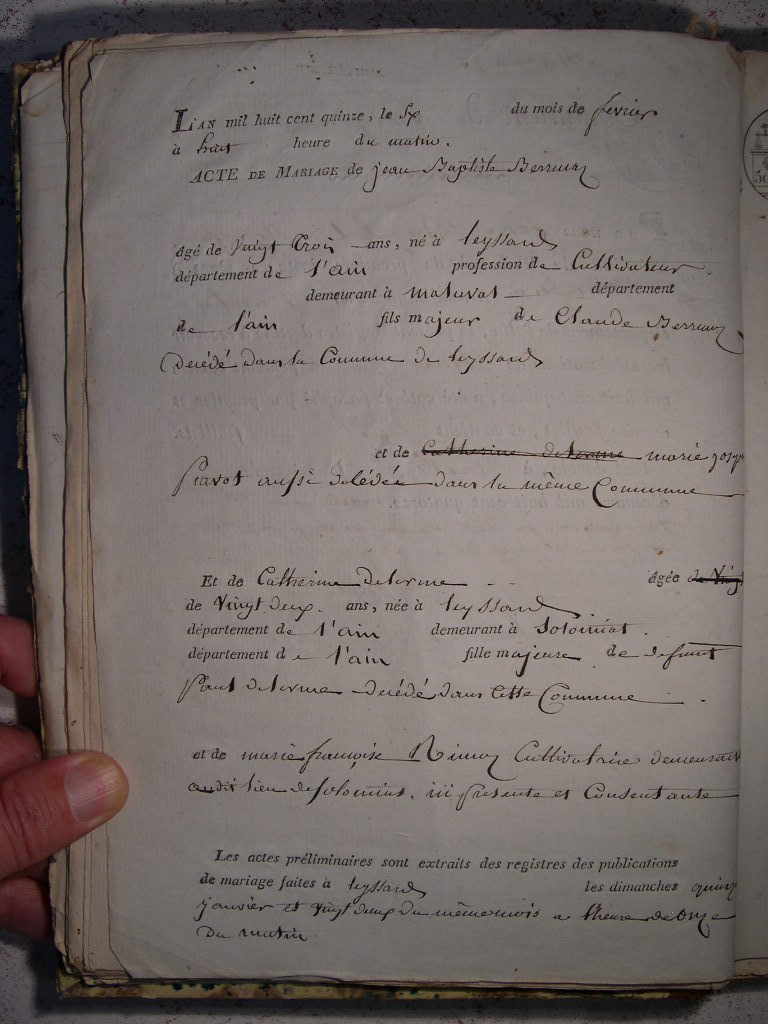 L'AN mil huit cent quinze, le six du mois de fevrier
à huit heure du matin.
ACTE DE MARIAGE de jean Baptiste Berruaz
âgé de Vingt trois ans, né à leyssard
département de l'ain profession de Cultivateur.
demeurant à département
de l'ain fils majeur de Claude Berruaz
décédé dans la Commune de leyssard
et de Catherine delorme marie
aussi décédée dans la même Commune
Et de Catherine delorme âgée de Vingt
de Vingt deux ans, née à leyssard
département de l'ain demeurant à Solomiat.
département de l'ain fille majeure de defunt
Paul delorme décédé dans Cette Commune
et de marie françoise Cultivatrice demeurant
audit lieu de solomiat. ici présente et Consentante
Les actes préliminaires sont extraits des registres des publications
de mariage faites à leyssard les dimanches quinze
janvier et vingt deux du même mois a l'heure de onze
Du matin